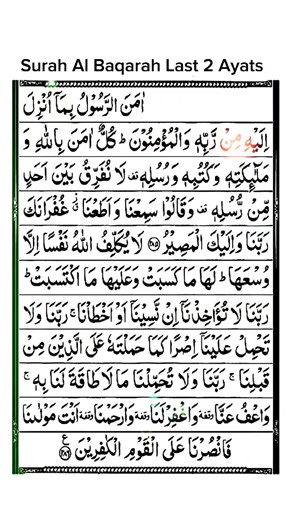 Surah Al Baqarah Last 2 Ayats
اٰمَنَ الرَّسُوْلُ بِمَاۤ اُنْزِلَ
اِلَيْهِ مِنْ رَّبِّهٖ وَالْمُؤْمِنُوْنَ ؕ كُلٌّ اٰمَنَ بِاللّٰهِ وَ
مَلٰٓئِكَتِهٖ وَكُتُبِهٖ وَرُسُلِهٖ قف لَا نُفَرِّقُ بَيْنَ اَحَدٍ
مِّنْ رُّسُلِهٖ قف وَقَالُوْا سَمِعْنَا وَاَطَعْنَا ز غُفْرَانَكَ
رَبَّنَا وَاِلَيْكَ الْمَصِيْرُ ﴿۲۸۵﴾ لَا يُكَلِّفُ اللّٰهُ نَفْسًا اِلَّا
وُسْعَهَا ؕ لَهَا مَا كَسَبَتْ وَعَلَيْهَا مَا اكْتَسَبَتْ ؕ
رَبَّنَا لَا تُؤَاخِذْنَاۤ اِنْ نَّسِيْنَاۤ اَوْ اَخْطَاْنَا ۚ رَبَّنَا وَلَا
تَحْمِلْ عَلَيْنَاۤ اِصْرًا كَمَا حَمَلْتَهٗ عَلَى الَّذِيْنَ مِنْ
قَبْلِنَا ۚ رَبَّنَا وَلَا تُحَمِّلْنَا مَا لَا طَاقَةَ لَنَا بِهٖ ۚ
وَاعْفُ عَنَّا وقفة وَاغْفِرْ لَنَا وقفة وَارْحَمْنَا وقفة اَنْتَ مَوْلٰىنَا
فَانْصُرْنَا عَلَى الْقَوْمِ الْكٰفِرِيْنَ ﴿۲۸۶﴾ ع